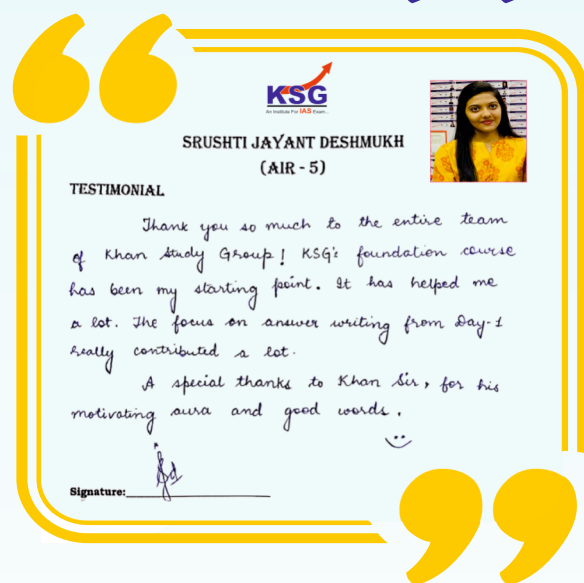 KSG
An Institute For IAS Exam...
SRUSHTI JAYANT DESHMUKH
(AIR - 5)
TESTIMONIAL
Thank you so much to the entire team
of Khan Study Group! KSG's foundation course
has been my starting point. It has helped me
a lot. The focus on answer writing from Day-1
really contributed a lot.
A special thanks to Khan Sir, for his
motivating aura and good words.
Signature: